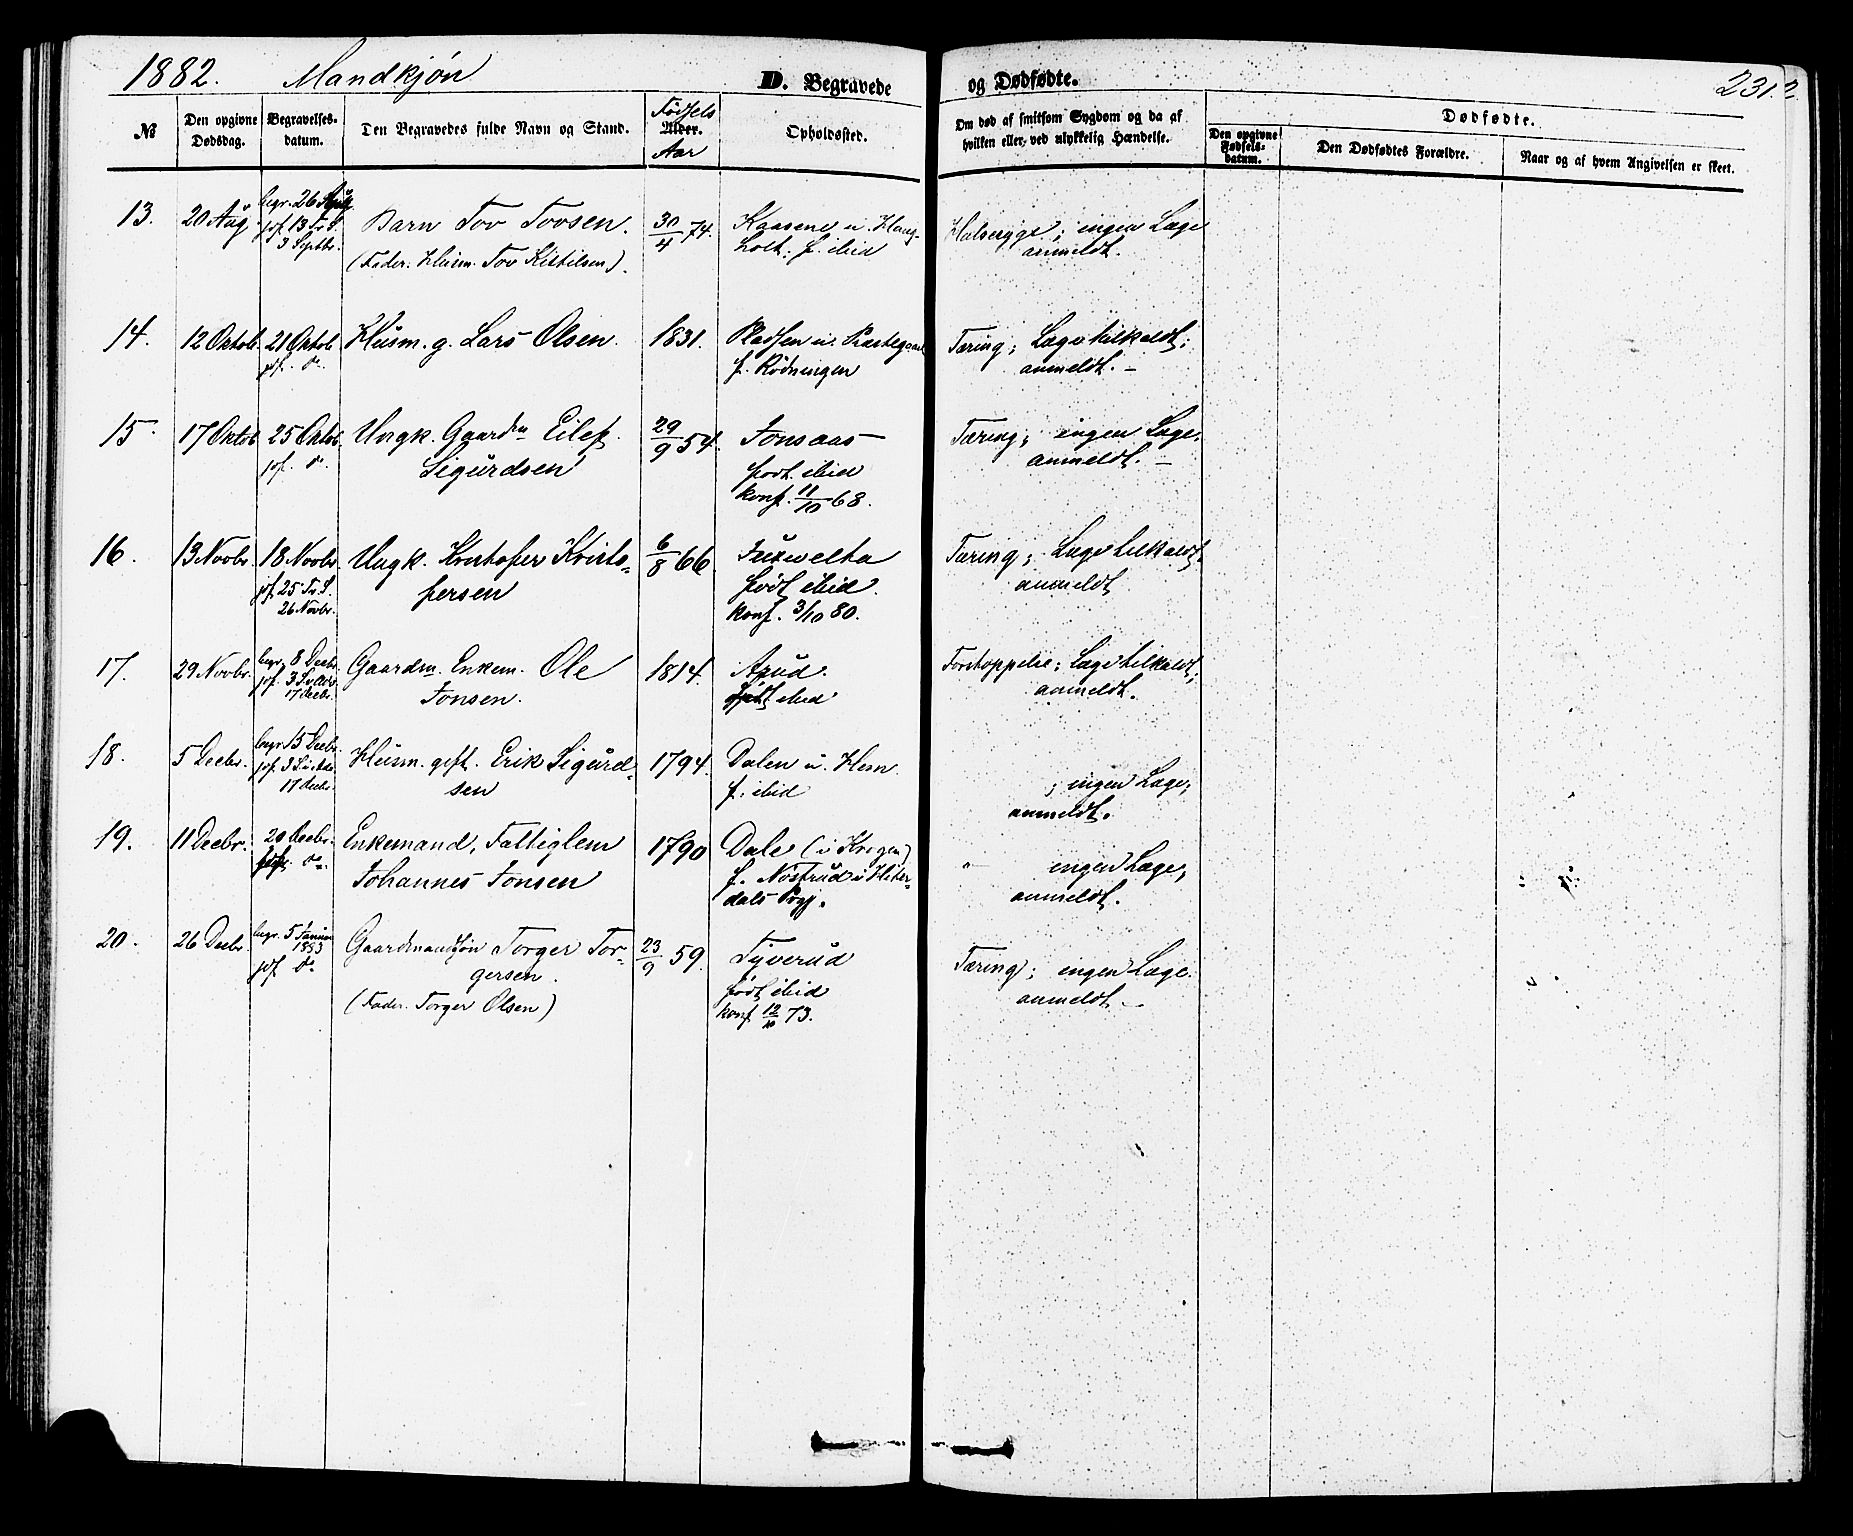 1882. Mandkjøn D. Begravede og Dødfødte. 231.
№ Den opgivne Dødsdag. Begravelses-datum. Den Begravedes fulde Navn og Stand. Fødsels Alder. Aar Opholdssted. Om død af smitsom Sygdom og da af hvilken eller ved ulykkelig Hændelse. Dødfødte.
Den opgivne Fødsels-datum. Den Dødfødtes Forældre. Naar og af hvem Angivelsen er skeet.
13. 20 Aug. begr. 26 Aug. Barn Tov Tovsen. 30/4 74. Kaasene u. Haug- Halssyge; ingen Læge
jof. 13 Tr. S. holt; f. ibid anmeldt.
3 Septbr. (Fader: Husm. Tov Kittilsen).
14. 12 Oktob. 21 Oktob. Husm. g. Lars Olsen. 1831. Pladsen u. Tæring; Læge tilkaldt;
jof. do. f. Rödningen anmeldt. –
15. 17 Oktob. 25 Oktob. Ungk. Gaardm. Eilef 29/9 54. Jonsaas Tæring; ingen Læge.
jof. do. Sigurdsen født ibid anmeldt. –
konf. 11/10 68.
16. 13 Novbr. 18 Novbr. Ungk. Kristofer Kristo- 6/8 66 Tæring; Læge tilkaldt.
jof. 25 Tr. S. fersen født ibid. anmeldt
26 Novbr. konf. 3/10 80.
17. 29 Novbr. begr. 8 Decbr. Gaardm. Enkem. Ole 1814. Forstoppelse; Læge tilkaldt;
jof. 3 S. i Adv. Jonsen. født ibid anmeldt.
17 Decbr.
18. 5 Decbr. begr. 15 Decbr. Husm. gift. Erik Sigurd- 1794. Dalen u. Hem. ; ingen Læge;
jof. 3 S. i Adv. sen f. ibid anmeldt.
17 Decbr.
19. 11 Decbr. 20 Decbr. Enkemand, Fattiglem 1790 Dale " ingen Læge;
jof. do. Johannes Jonsen f. Nostrud i Hiter- anmeldt.
dals Prgj.
20. 26 Decbr. begr. 5 Januar Gaardmandssøn Torger Tor- 23/9 59. Tyverud Tæring; ingen Læge.
1883 gersen. født ibid anmeldt. –
jof do (Fader: Torger Olsen) konf. 12/10 73.